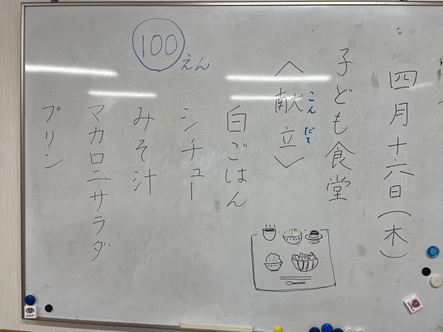 四月十六日(木)
子ども食堂
〈献立〉
こん だて
白ごはん
シチュー
みそ汁
マカロニサラダ
プリン
100えん